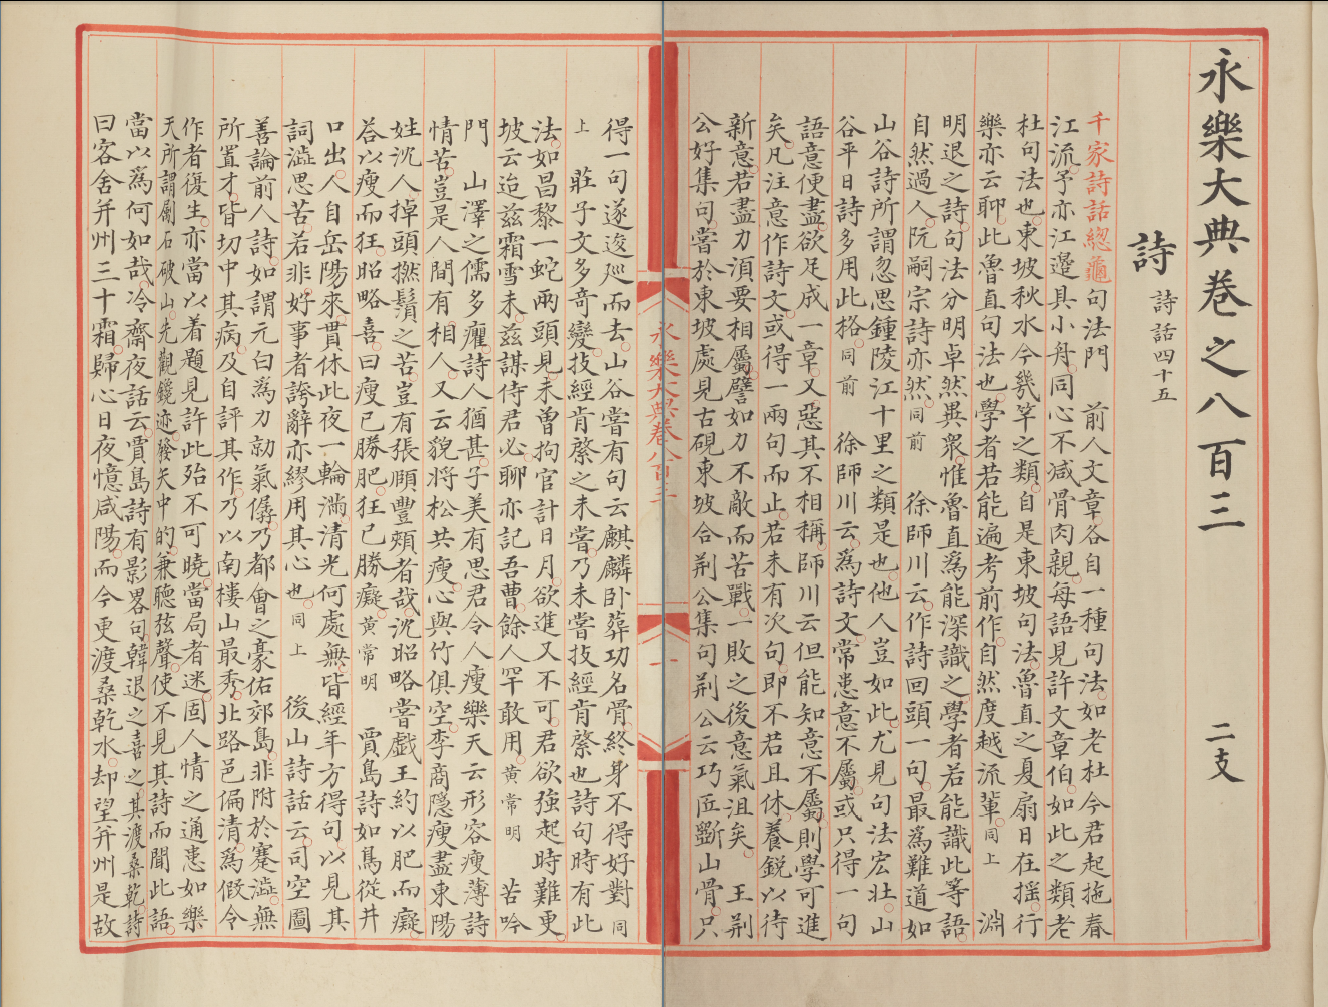 永樂大典卷之八百三 二支
詩 詩話四十五
千家詩話總龜句法門 前人文章各自一種句法如老杜今君起拖春
江流予亦江邊具小舟同心不減骨肉親每語見許文章伯如此之類老
杜句法也東坡秋水今幾竿之類自是東坡句法魯直之夏扇日在摇行
樂亦云聊此魯直句法也學者若能遍考前作自然度越流輩同上 淵
明退之詩句法分明卓然異衆惟魯直爲能深識之學者若能識此等語
自然過人阮嗣宗詩亦然同前 徐師川云作詩回頭一句最爲難道如
山谷詩所謂忽思鍾陵江十里之類是也他人豈如此尤見句法宏壯山
谷平日詩多用此格同前 徐師川云爲詩文常患意不屬或只得一句
語意便盡欲足成一章又惡其不相稱師川云但能知意不屬則學可進
矣凡注意作詩文或得一兩句而止若未有次句即不若且休養鋭以待
新意若盡力須要相屬譬如力不敵而苦戰一敗之後意氣沮矣 王荆
公好集句嘗於東坡處見古硯東坡令荆公集句荆公云巧匠斵山骨只
永樂大典卷八百三 一
得一句遂逡廵而去山谷嘗有句云麒麟卧葬功名骨終身不得好對同
上 莊子文多奇變技經肯綮之未嘗乃未嘗技經肯綮也詩句時有此
法如昌黎一蛇兩頭見未曽拘官計日月欲進又不可君欲強起時難更
坡云迨兹霜雪未兹謀侍君必聊亦記吾曹餘人罕敢用黄常明 苦吟
門 山澤之儒多癯詩人猶甚子美有思君令人瘦樂天云形容瘦薄詩
情苦豈是人間有相人又云貌將松共瘦心與竹俱空李商隱瘦盡東陽
姓沈人掉頭撚鬚之苦豈有張頤豐頰者哉沈昭略嘗戯王約以肥而癡
答以瘦而狂昭略喜曰瘦已勝肥狂已勝癡黄常明 賈島詩如鳥從井
口出人自岳陽來貫休此夜一輪滿清光何處無皆經年方得句以見其
詞澁思苦若非好事者誇辭亦繆用其心也同上 後山詩話云司空圖
善論前人詩如謂元白爲力勍氣孱乃都會之豪估郊島非附於蹇澁無
所置才皆切中其病及自評其作乃以南樓山最秀北路邑偏清爲假令
作者復生亦當以着題見許此殆不可曉當局者迷固人情之通患如樂
天所謂劚石破山先觀鑱迹發矢中的兼聽弦聲使不見其詩而聞此語
當以爲何如哉冷齋夜話云賈島詩有影畧句韓退之喜之其渡桑乾詩
曰客舍并州三十霜歸心日夜憶咸陽而今更渡桑乾水却望并州是故